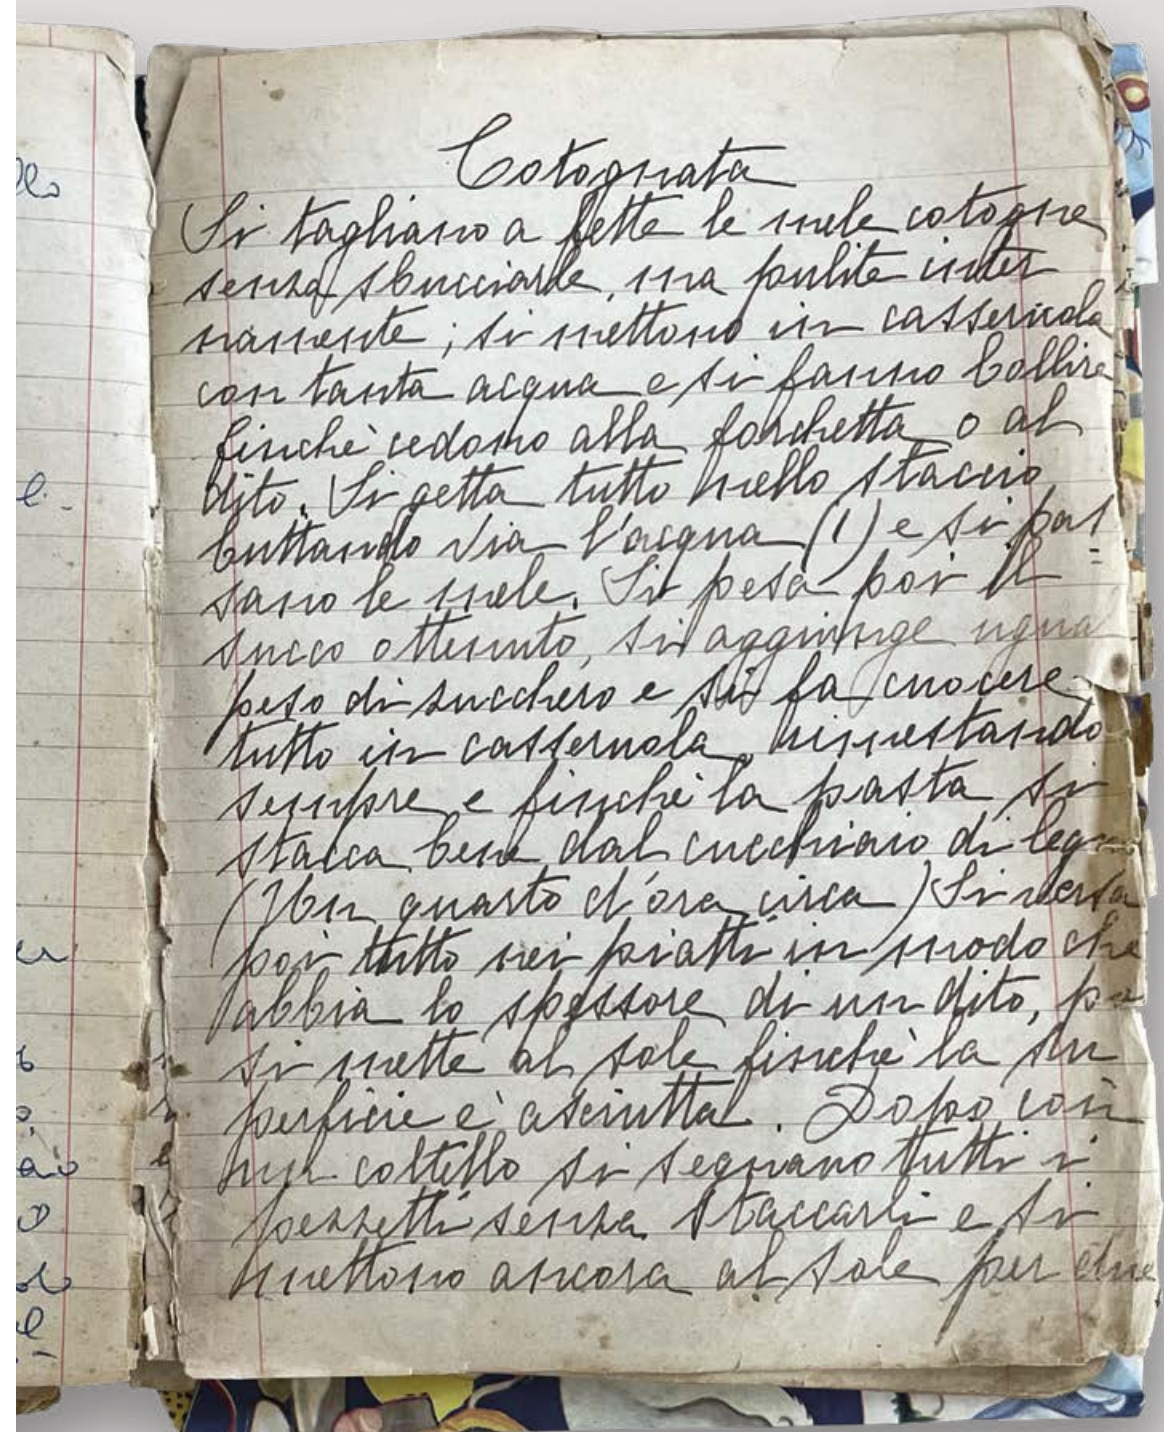 Cotognata
Si tagliano a fette le mele cotogne
senza sbucciarle, ma pulite inter
namente; si mettono in casseruola
con tanta acqua e si fanno bollire
finchè cedono alla forchetta o al
dito. Si getta tutto nello staccio
buttando via l'acqua (1) e si pas=
sano le mele. Si pesa poi il
succo ottenuto, si aggiunge ugual
peso di zucchero e si fa cuocere
tutto in casseruola, rimestando
sempre e finchè la pasta si
stacca bene dal cucchiaio di legno
(Un quarto d'ora circa) Si versa
poi tutto nei piatti in modo che
abbia lo spessore di un dito,
si mette al sole finchè la su
perficie è asciutta. Dopo con
un coltello si segnano tutti i
pezzetti senza staccarli e si
mettono ancora al sole per due